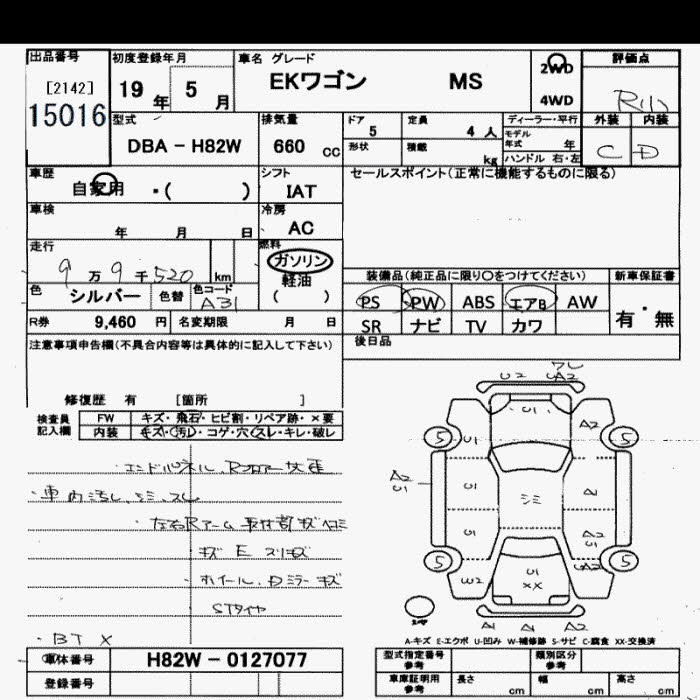 出品番号 初度登録年月 車名 グレード 評価点
[2142] 19年 5月 EKワゴン MS 2WD 4WD
15016
型式 排気量 ドア 定員 ディーラー・平行 外装 内装
DBA - H82W 660 cc 5 4 人 モデル年式 年 C D
形状 積載 kg ハンドル 右・左
車歴 シフト セールスポイント(正常に機能するものに限る)
自家用 ・( ) IAT
車検 冷房
年 月 日 AC
走行 燃料
9万9千520 km ガソリン
軽油
( )
装備品(純正品に限り〇をつけてください) 新車保証書
色 シルバー 色替 色コード A31 PS PW ABS エアB AW 有・無
R券 9,460 円 名変期限 月 日 SR ナビ TV カワ
注意事項申告欄(不具合内容等は具体的に記入して下さい) 後日品
修復歴 有 [箇所 ]
検査員記入欄 FW キズ・飛石・ヒビ割・リペア跡・×要
内装 キズ・汚レ・コゲ・穴・スレ・キレ・破レ
エンドパネル、Rフロアー
・車内汚レ、シミ、スレ
・左右Rアーム取付部キズ
・キズ E スリキズ
・ホイール、Dミラーキズ
STタイヤ
・BT X
U2 UA2
U1 A2
5 5
U1
A2 U1 U1 シミ A1
U1 A2 U1
5 5
W2 U1 XX UA2
A1 A1 A2
A-キズ E-エクボ U-凹み W-補修跡 S-サビ C-腐食 XX-交換済
車体番号 H82W - 0127077 型式指定番号 参考 類別区分 参考
登録番号 車庫証明用 参考 長さ cm 幅 cm 高さ cm